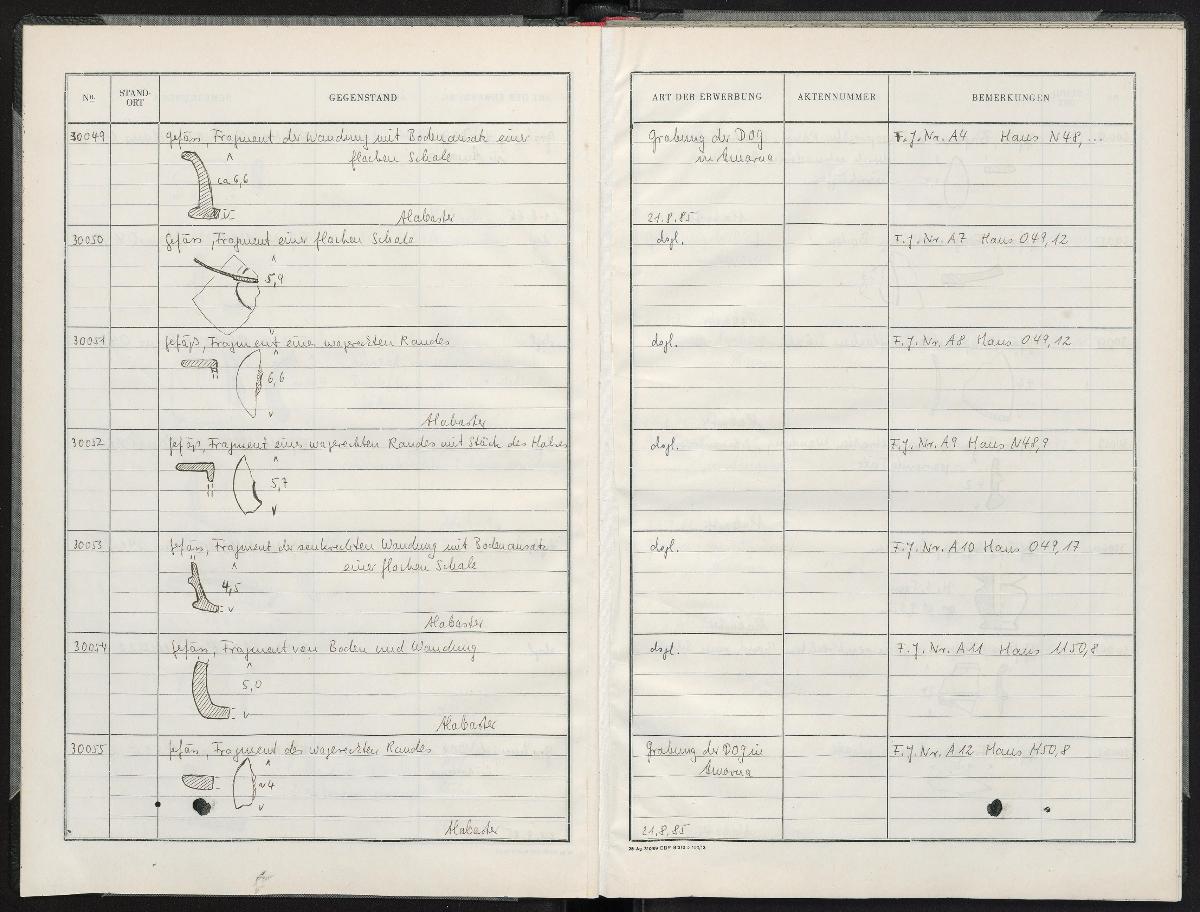 Nr.
STAND-
ORT
GEGENSTAND
ART DER ERWERBUNG
AKTENNUMMER
BEMERKUNGEN
30049
Gefäss, Fragment der Wandung mit Bodenansatz einer
flachen Schale
ca 6,6
Alabaster
Grabung der DOG
in Amarna
21.8.85
F.J. Nr. A4 Haus N48, ...
30050
Gefäss, Fragment einer flachen Schale
5,9
dsgl.
F.J. Nr. A7 Haus O49,12
30051
Gefäß, Fragment eines wagerechten Randes
6,6
Alabaster
dsgl.
F.J. Nr. A8 Haus O49,12
30052
Gefäß, Fragment eines wagerechten Randes mit Stück des Halses
5,7
dsgl.
F.J. Nr. A9 Haus N48,9
30053
Gefäss, Fragment der senkrechten Wandung mit Bodenansatz
einer flachen Schale
4,5
Alabaster
dsgl.
F.J. Nr. A10 Haus O49,17
30054
Gefäss, Fragment von Boden und Wandung
5,0
Alabaster
dsgl.
F.J. Nr. A11 Haus M50,8
30055
Gefäss, Fragment des wagerechten Randes
~4
Alabaster
Grabung der DOG in
Amarna
21.8.85
F.J. Nr. A12 Haus M50,8